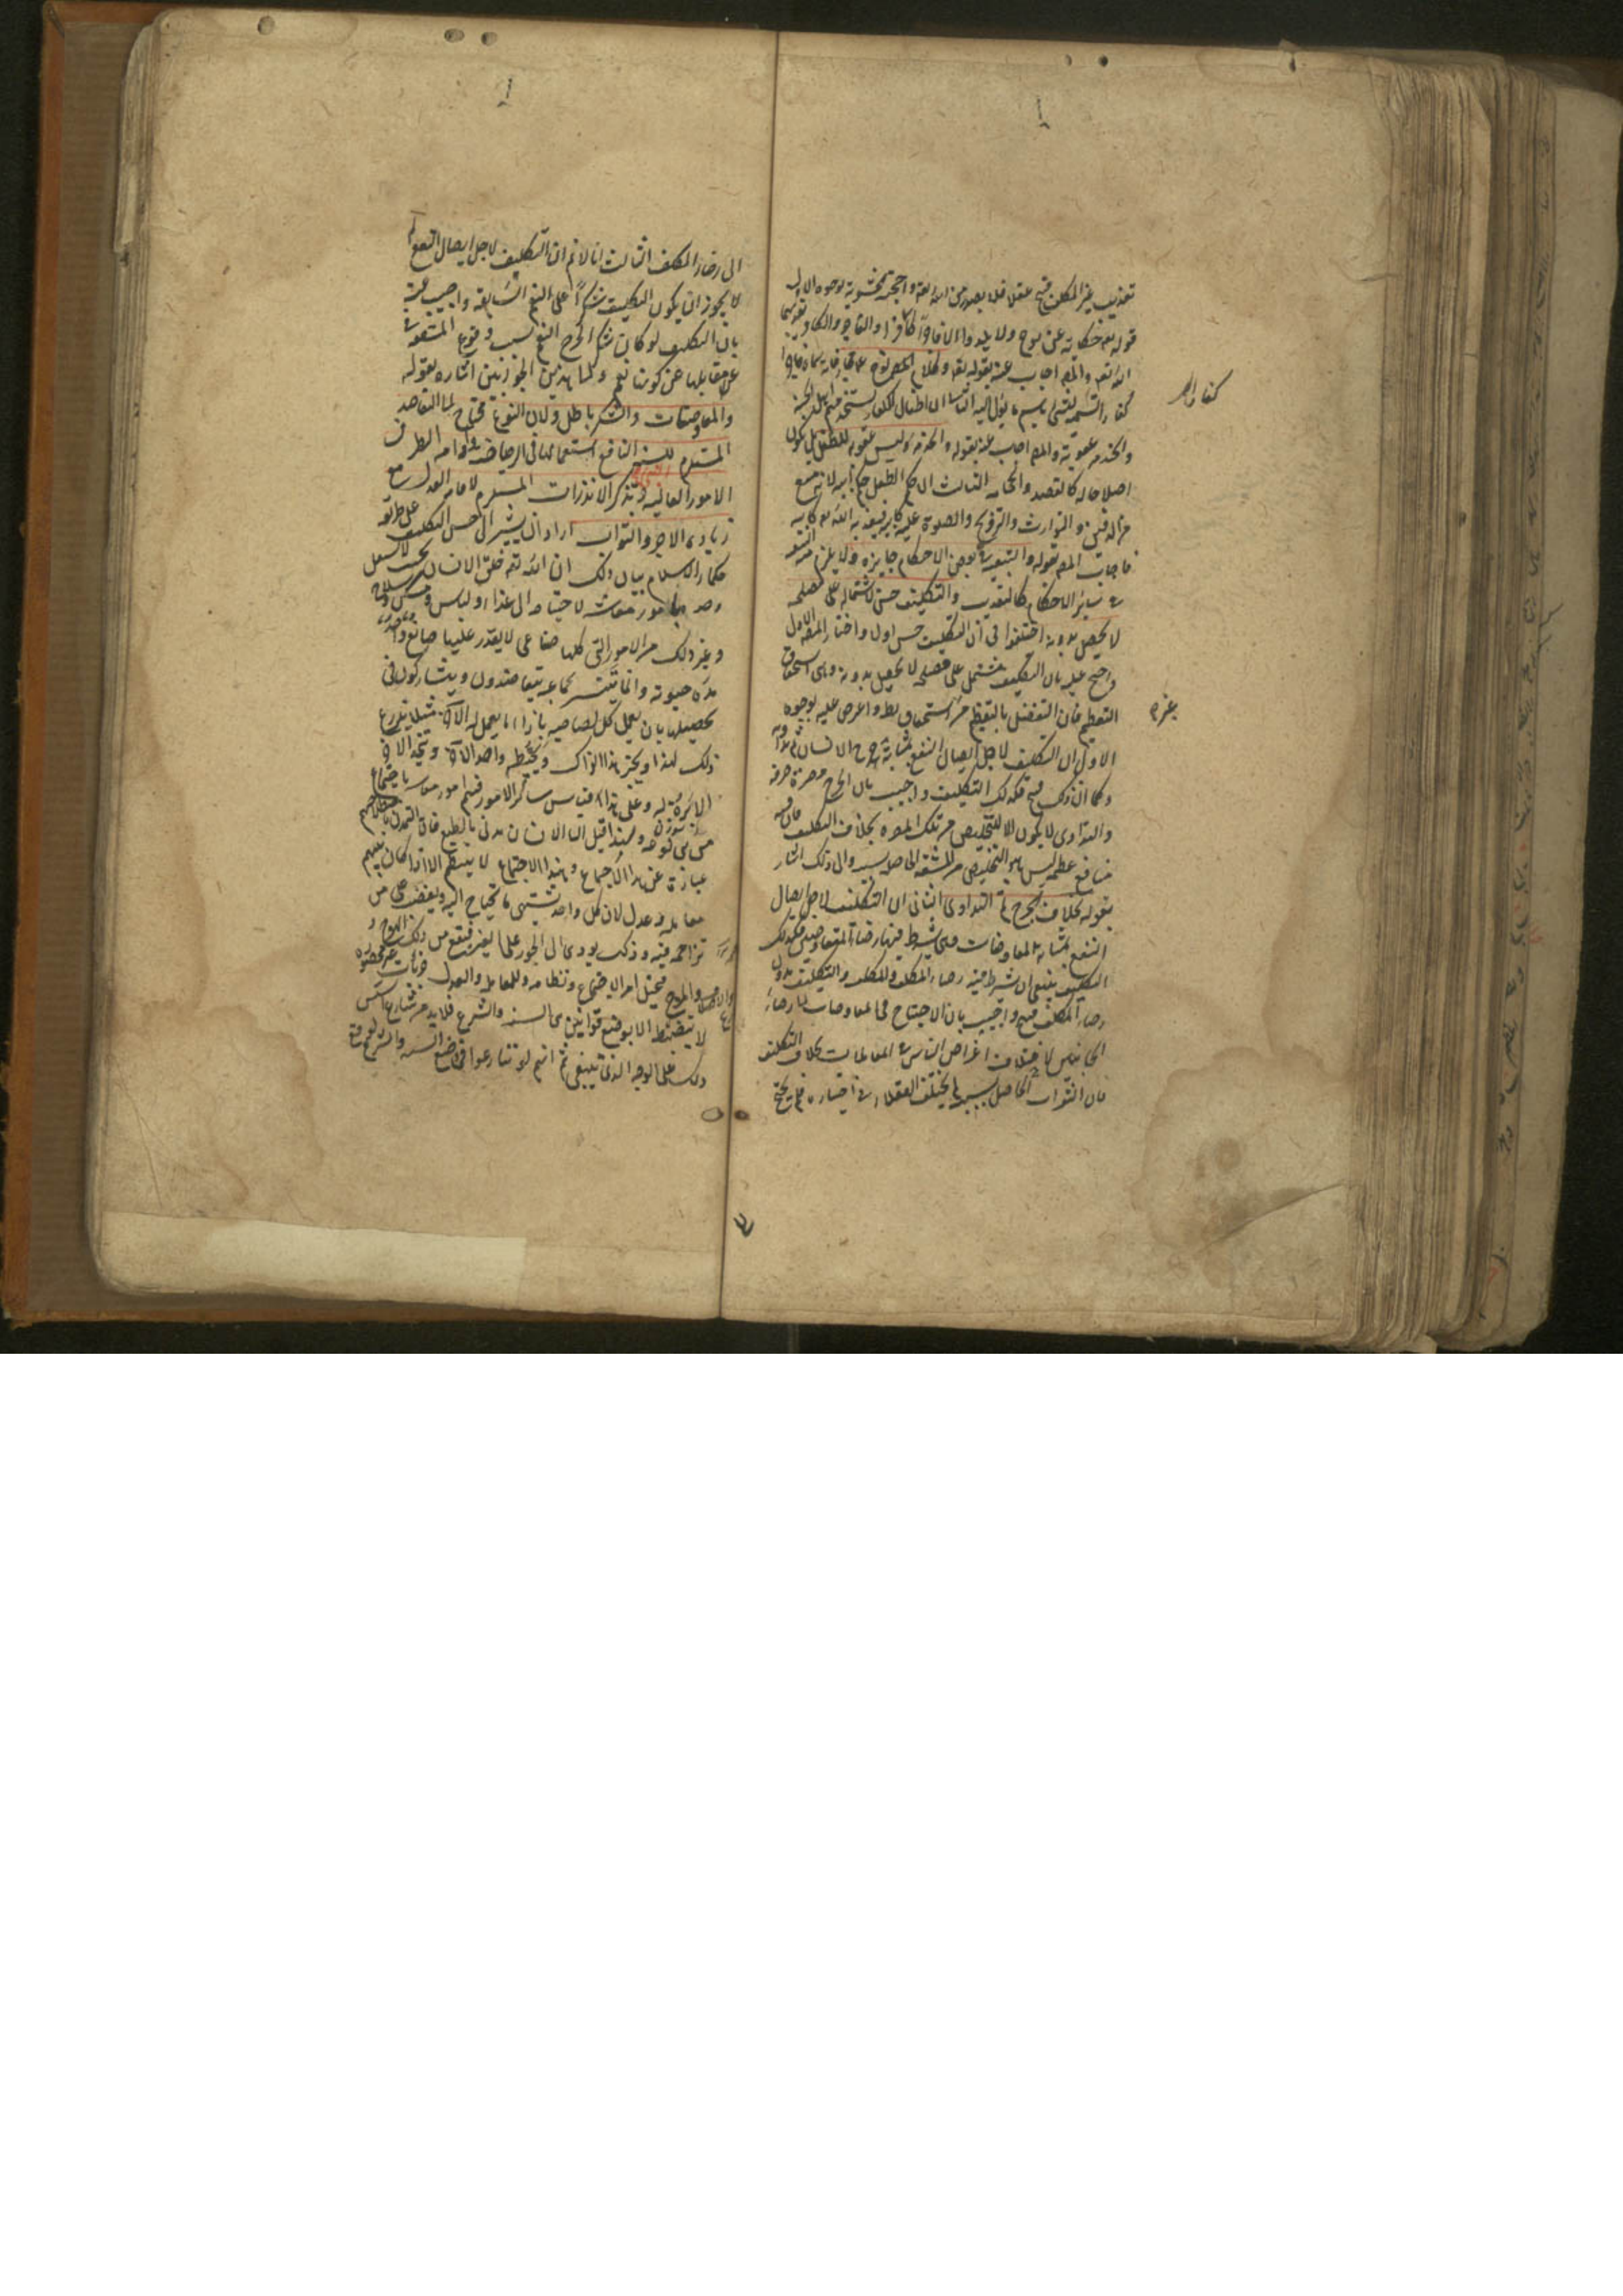 تعذيب غير المكلف قبيح عقلا فلا يصدر من الله تعه واحتجت الحشوية بوجوه الاول
قوله تعه حكاية عن نوح ولا يلدوا الا فاجرا كفارا والفاجر والكافر يعذبهما
الله تعه والمص اجاب عنه بقوله
كفارا تسمية للشئ باسم ما يؤل اليه الثانى ان اطفال الكفار تستخدم لاهل الجنة
والخدمة عقوبة والمص اجاب عنه بقوله والخدمة ليس عقوبة للطفل بل يكون
اصلاحا له كالفصد والحجامة الثالث ان حكم الطفل حكم ابيه لانه يمنع
من الدفن والتوارث والتزويج والصلوة عليه كابيه فيعذبه الله تعه كابيه
فاجاب المص بقوله والتبعية فى بعض الاحكام جايزة ولا يلزم منه التبعية
فى سائر الاحكام كالتعذيب والتكليف حسن لاشتماله على مصلحة
لا يحصل بدونه اختلفوا فى ان التكليف حسن او لا واختار المص الاول
واحتج عليه بان التكليف مشتمل على مصلحة لا تحصل بدونه وهى استحقاق
التعظيم فان التفضل بالتعظيم من استحقاق واعترض عليه بوجوه
الاول ان التكليف لاجل ايصال النفع بمثابة جرح الانسان ثم مداواته
وكما ان ذلك قبيح فكذلك التكليف واجيب بان الجرح مضرة صرفة
والتداوى لا يكون الا للتخليص من تلك المضرة بخلاف التكليف فان فيه
منافع عظيمة ليس هو التخليص من المشقة الحاصلة بسببه والى ذلك اشار
بقوله بخلاف الجرح ثم التداوى الثانى ان التكليف لاجل ايصال
النفع بمثابة المعاوضات وهى يشترط فيها رضاء المتعاوضين فكذلك
التكليف ينبغى ان يشترط فيه رضاء المكلِف والمكلَف والتكليف بدون
رضاء المكلف قبيح واجيب بان الاحتياج فى المعاوضات الى رضاء
الجانبين لاختلاف اغراض الناس فى المعاملات بخلاف التكليف
فان الثواب الحاصل بسببه لا يختلف العقلاء فى اختياره فلم يحتج
كفارا
بغيره
الى رضاء المكلف الثالث انا لا نم ان التكليف لاجل ايصال النفع لم
لا يجوز ان يكون التكليف شكرا على النعم السابقة واجيب عنه
بان التكليف لو كان شكرا لخرج النعم بسبب وقوع المشقة فى
مقابلها عن كونها نعما والى هذين الجوابين اشاره بقوله
والمعاوضات والشكر باطل ولان النوع محتاج الى التعاضد
المستلزم للسنة النافع استعمالها فى الرياضة وادامة النظر فى
الامور العالية وتذكر الانذارات المستلزم لاقامة العدل مع
زيادة الاجر والثواب اراد ان يشير الى حسن التكليف على طريقة
حكماء الاسلام بيان ذلك ان الله تعه خلق الانسان بحيث لا يستقل
وحده بامور معاشه لاحتياجه الى غذاء ولباس ومسكن وسلاح
وغير ذلك من الامور التى كلها صناعى لا يقدر عليها صانع واحد
مدة حيوته وانما يتيسر لجماعة يتعاضدون ويتشاركون فى
تحصيلها بان يعمل كل لصاحبه بازاء ما يعمل له الاخر مثلا يزرع
ذلك لهذا ويخبز هذا لذاك ويخيط واحد لآخر ويتخذ الاخر
الابرة له وعلى هذا قياس سائر الامور فيتم امور معاشه باجتماع
من بنى نوعه ولهذا قيل ان الانسان مدنى بالطبع فان التمدن باصطلاحهم
عبارة عن هذا الاجتماع وهذا الاجتماع لا ينتظم الا اذا كان بينهم
معاملة وعدل لان كل واحد يشتهى ما يحتاج اليه ويغضب على من
تزاحمه فيه وذلك يودى الى الجور على الغير فيقع من ذلك الهرج و
المرج ويختل امر الاجتماع ونظامه وللمعاملة والعدل جزئيات غير محصورة
لا تنضبط الا بوضع قوانين هى السنة والشرع فلابد من شارع يسن
ذلك على الوجه الذى ينبغى ثم انهم لو تنازعوا فى وضع السنة والشرع لوقع